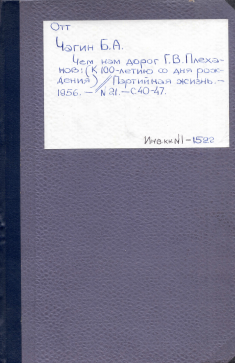 Отт
Чагин Б.А.
Чем нам дорог Г.В. Плеха-
нов: (К 100-летию со дня рож-
дения) // Партийная жизнь.–
1956. – N 21. – С 40-47.
Инв.кн N1-1592